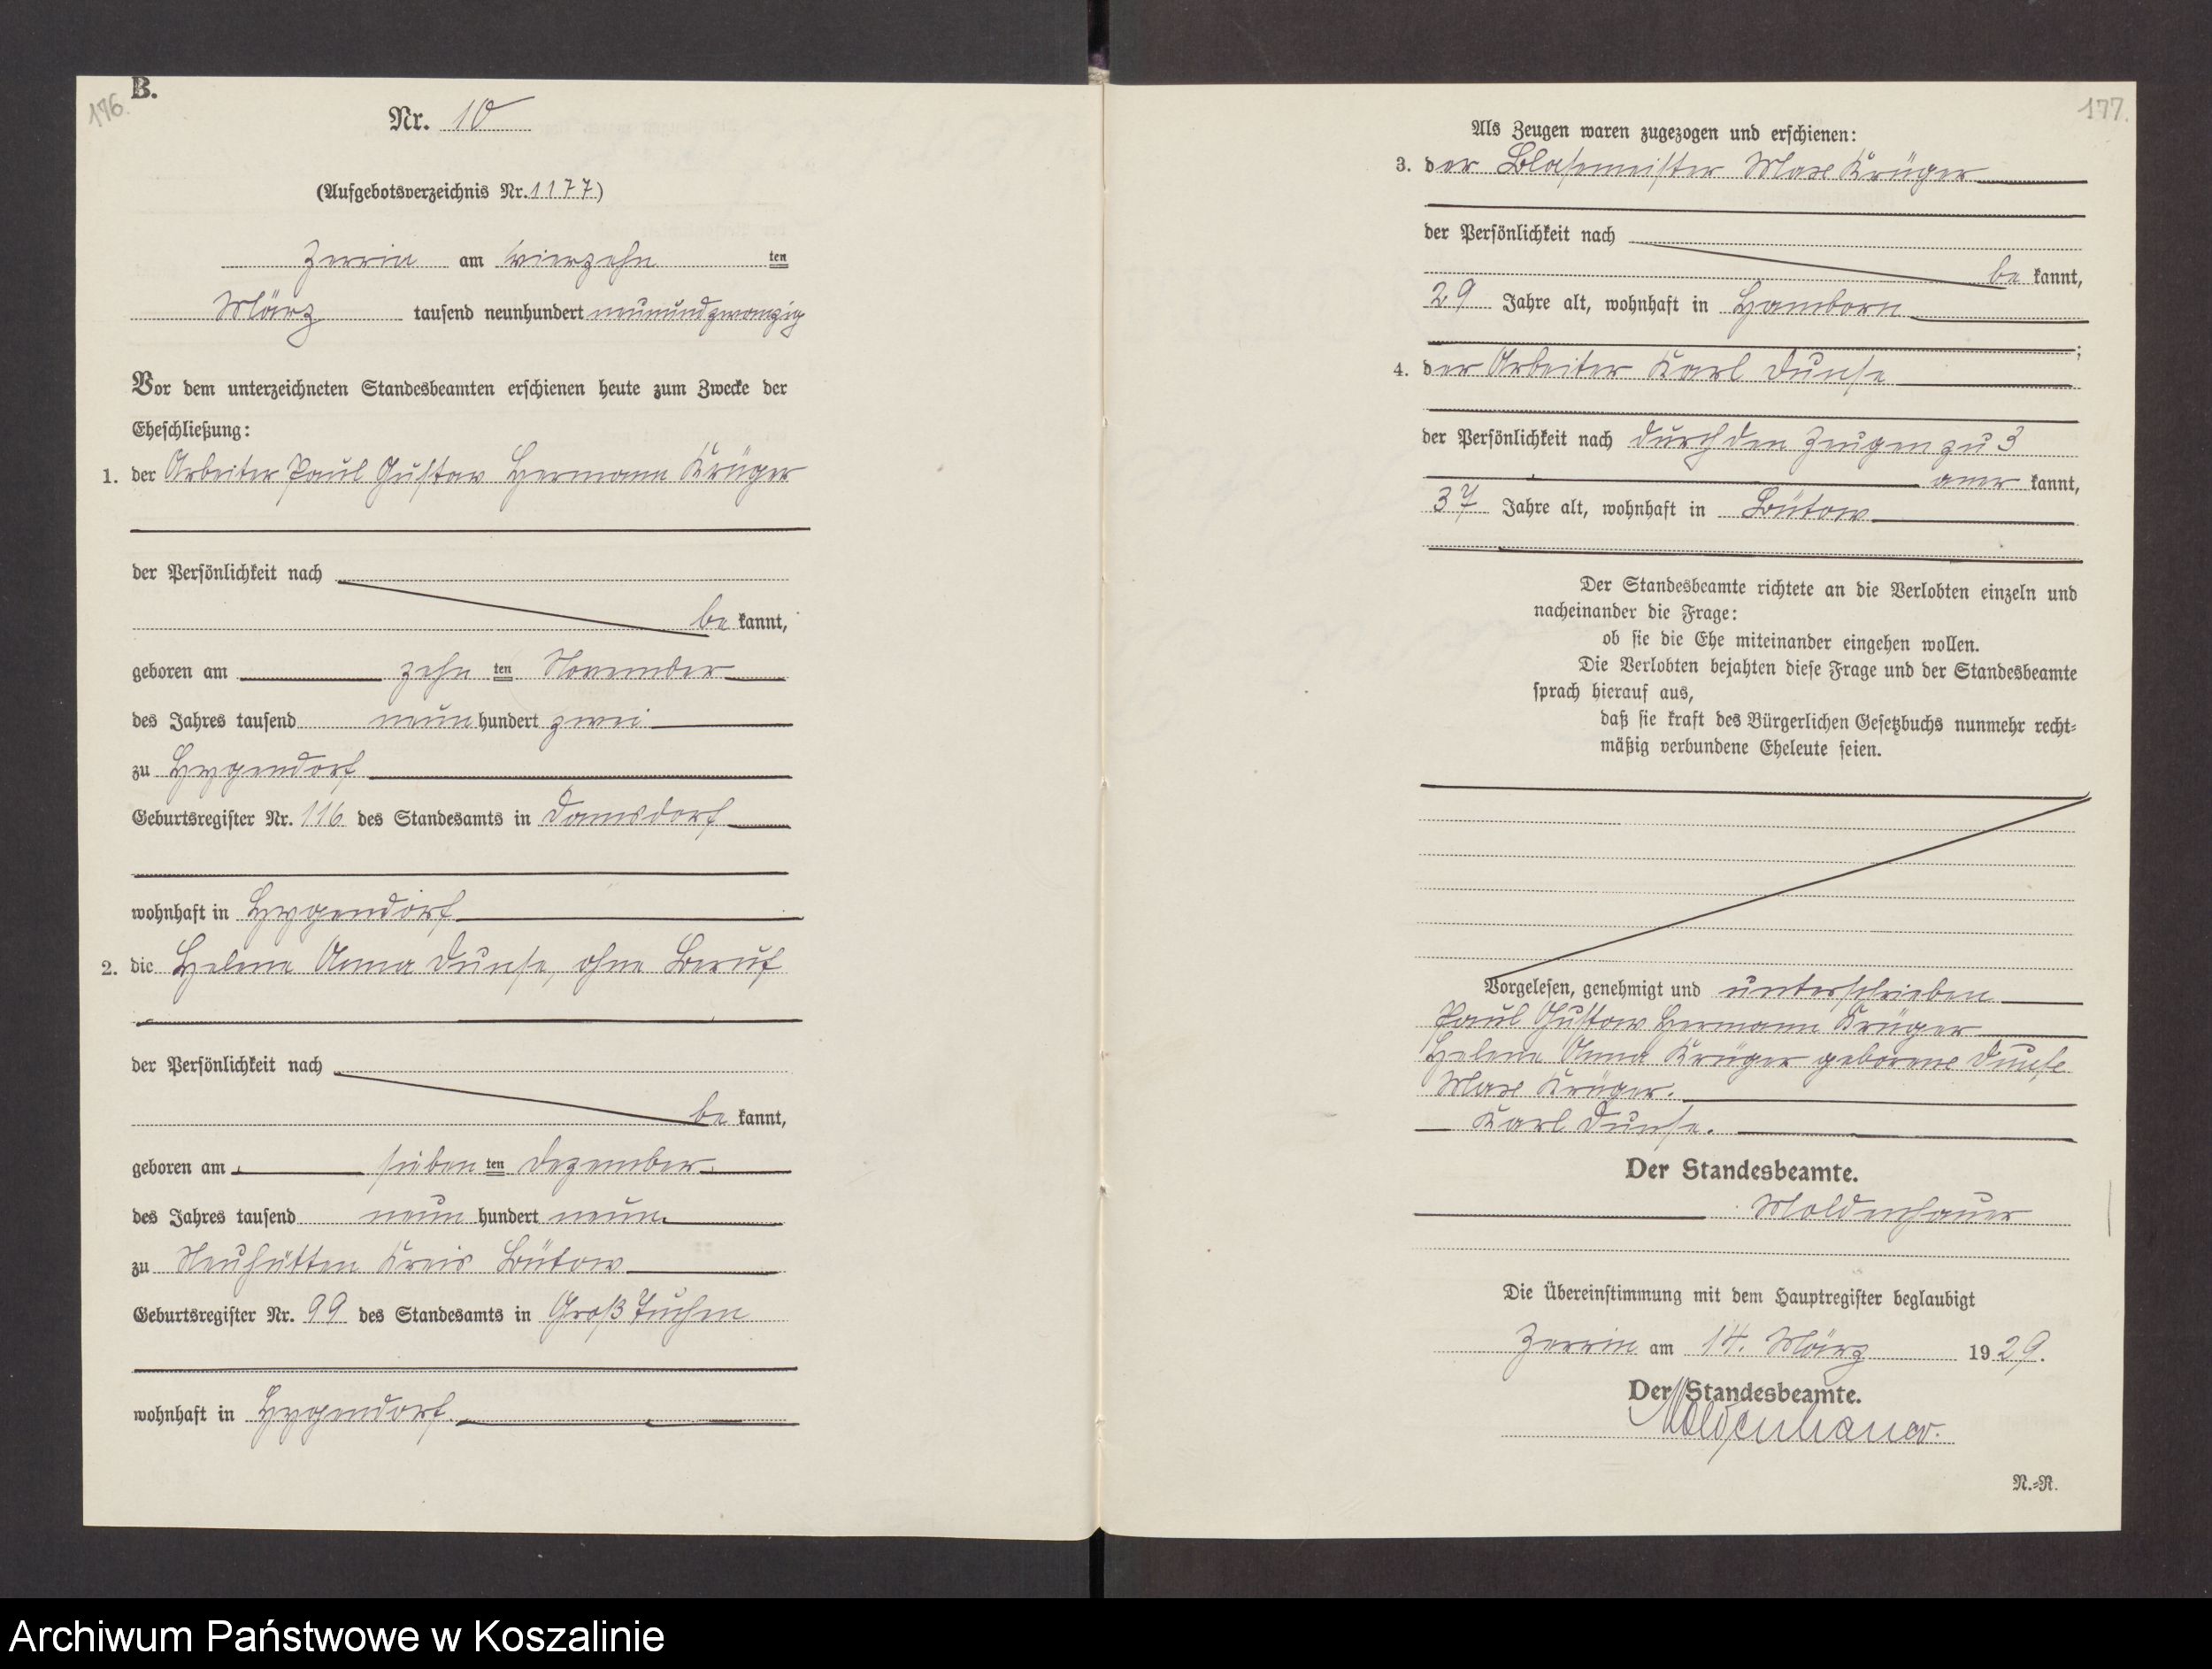 B.
176.
Nr. 10
(Aufgebotsverzeichnis Nr. 1177)
Zerrin am vierzehn ten
März tausend neunhundert neunundzwanzig
Vor dem unterzeichneten Standesbeamten erschienen heute zum Zwecke der
Eheschließung:
1. der Arbeiter Paul Gustav Hermann Krüger
der Persönlichkeit nach
be kannt,
geboren am zehn ten November
des Jahres tausend neun hundert zwei
zu Hygendorf
Geburtsregister Nr. 116 des Standesamts in Damsdorf
wohnhaft in Hygendorf
2. die Helene Anna Dunse, ohne Beruf
der Persönlichkeit nach
be kannt,
geboren am sieben ten Dezember
des Jahres tausend neun hundert neun
zu Neuhütten Kreis Bütow
Geburtsregister Nr. 99 des Standesamts in Groß Tuchen
wohnhaft in Hygendorf
177.
Als Zeugen waren zugezogen und erschienen:
3. der Blasemeister Max Krüger
der Persönlichkeit nach
be kannt,
29 Jahre alt, wohnhaft in Hamborn
;
4. der Arbeiter Karl Dunse
der Persönlichkeit nach durch den Zeugen zu 3
aner kannt,
37 Jahre alt, wohnhaft in Bütow
Der Standesbeamte richtete an die Verlobten einzeln und
nacheinander die Frage:
ob sie die Ehe miteinander eingehen wollen.
Die Verlobten bejahten diese Frage und der Standesbeamte
sprach hierauf aus,
daß sie kraft des Bürgerlichen Gesetzbuchs nunmehr recht-
mäßig verbundene Eheleute seien.
Vorgelesen, genehmigt und unterschrieben
Paul Gustav Hermann Krüger
Helene Anna Krüger geborene Dunse
Max Krüger.
Karl Dunse.
Der Standesbeamte.
Moldenhauer
Die Übereinstimmung mit dem Hauptregister beglaubigt
Zerrin am 14. März 1929.
Der Standesbeamte.
Moldenhauer.
N.-R.
Archiwum Państwowe w Koszalinie